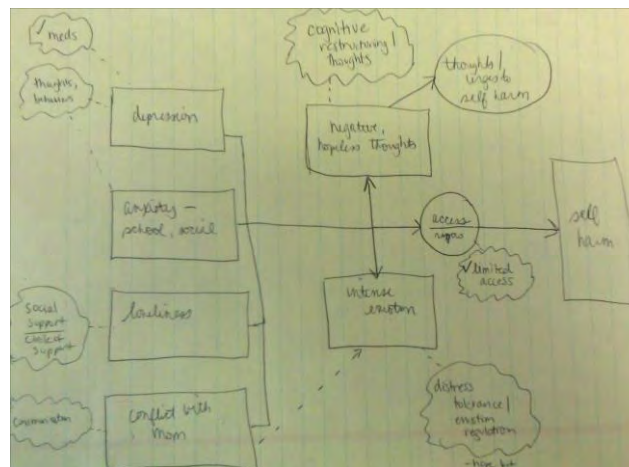 ✓ meds
thoughts,
behaviors
depression
anxiety –
school, social
social
support
clinical
support
loneliness
communication
conflict with
mom
cognitive
restructuring/
thoughts
negative,
hopeless thoughts
thoughts/
urges to
self harm
access
✓limited
access
self
harm
intense
emotion
distress
tolerance/
emotion
regulation